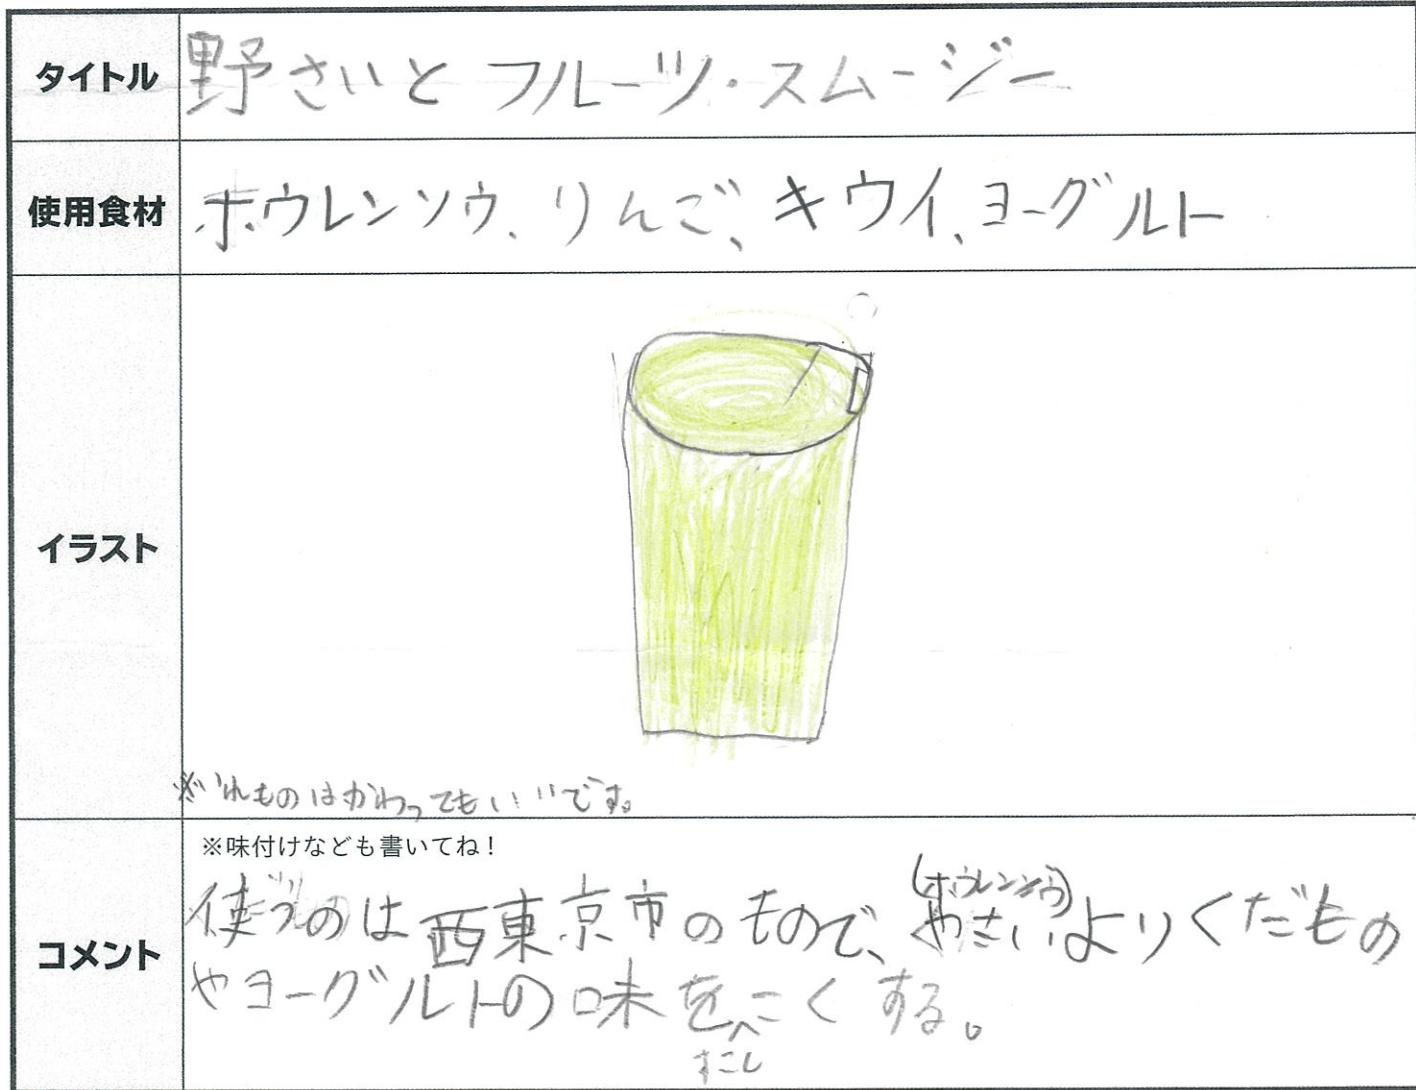 タイトル
野さいと フルーツ・スムージー
使用食材
ホウレンソウ、りんご、キウイ、ヨーグルト
イラスト
※いれものはかわってもいいです。
コメント
※味付けなども書いてね!
使うのは西東京市のもので、やさい(ホウレンソウ)よりくだもの
やヨーグルトの味をすこしこくする。